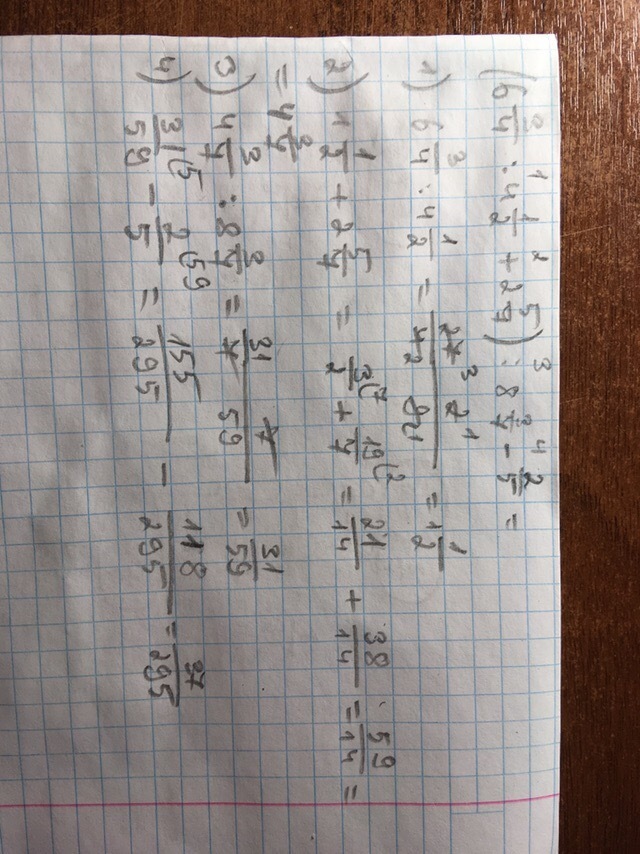 (6 3/4 : 4 1/2 + 2 5/7) : 8 3/7 - 2/5 =
1) 6 3/4 : 4 1/2 = 27 · 2 / 4 · 9 = 1 1/2
2) 1 1/2 + 2 5/7 = 3/2 + 19/7 = 21/14 + 38/14 = 59/14 =
= 4 3/7
3) 4 3/7 : 8 3/7 = 31 7 / 7 59 = 31/59
4) 31/59 - 2/5 = 155/295 - 118/295 = 37/295